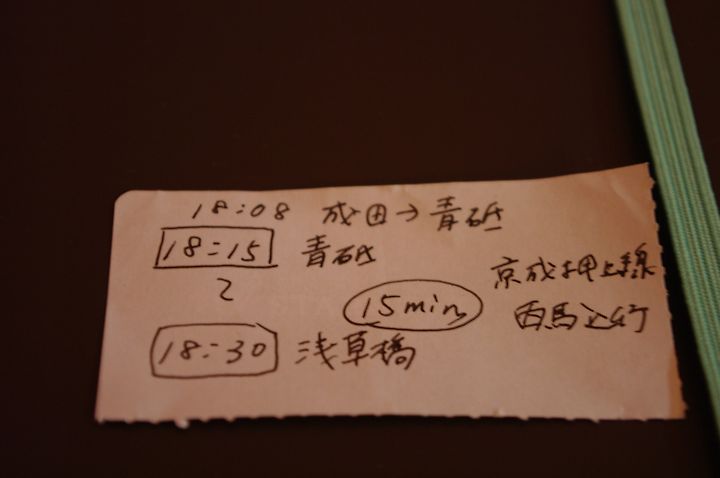 18:08 成田→青砥
18:15 青砥
京成押上線
15min
西馬込行
18:30 浅草橋